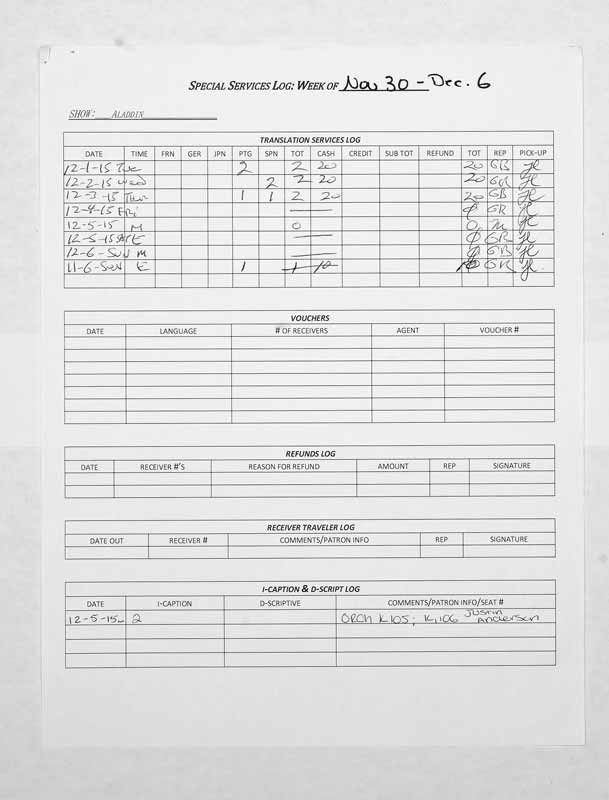 SPECIAL SERVICES LOG: WEEK OF Nov 30 - Dec. 6
SHOW: ALADDIN
TRANSLATION SERVICES LOG
DATE TIME FRN GER JPN PTG SPN TOT CASH CREDIT SUB TOT REFUND TOT REP PICK-UP
12-1-15 Tue 2 2 20 20 GB
12-2-15 Wed 2 2 20 20 GB
12-3-15 Thur 1 1 2 20 20 GB
12-4-15 Fri — ø GB
12-5-15 M 0 0
12-5-15 SAT E — ø GB
12-6-SUN M — ø GB
11-6-SUN E 1 1 10 10 GB
VOUCHERS
DATE LANGUAGE # OF RECEIVERS AGENT VOUCHER #
REFUNDS LOG
DATE RECEIVER #'S REASON FOR REFUND AMOUNT REP SIGNATURE
RECEIVER TRAVELER LOG
DATE OUT RECEIVER # COMMENTS/PATRON INFO REP SIGNATURE
I-CAPTION & D-SCRIPT LOG
DATE I-CAPTION D-SCRIPTIVE COMMENTS/PATRON INFO/SEAT #
12-5-15 2 ORCH K105; K106 Justin Anderson